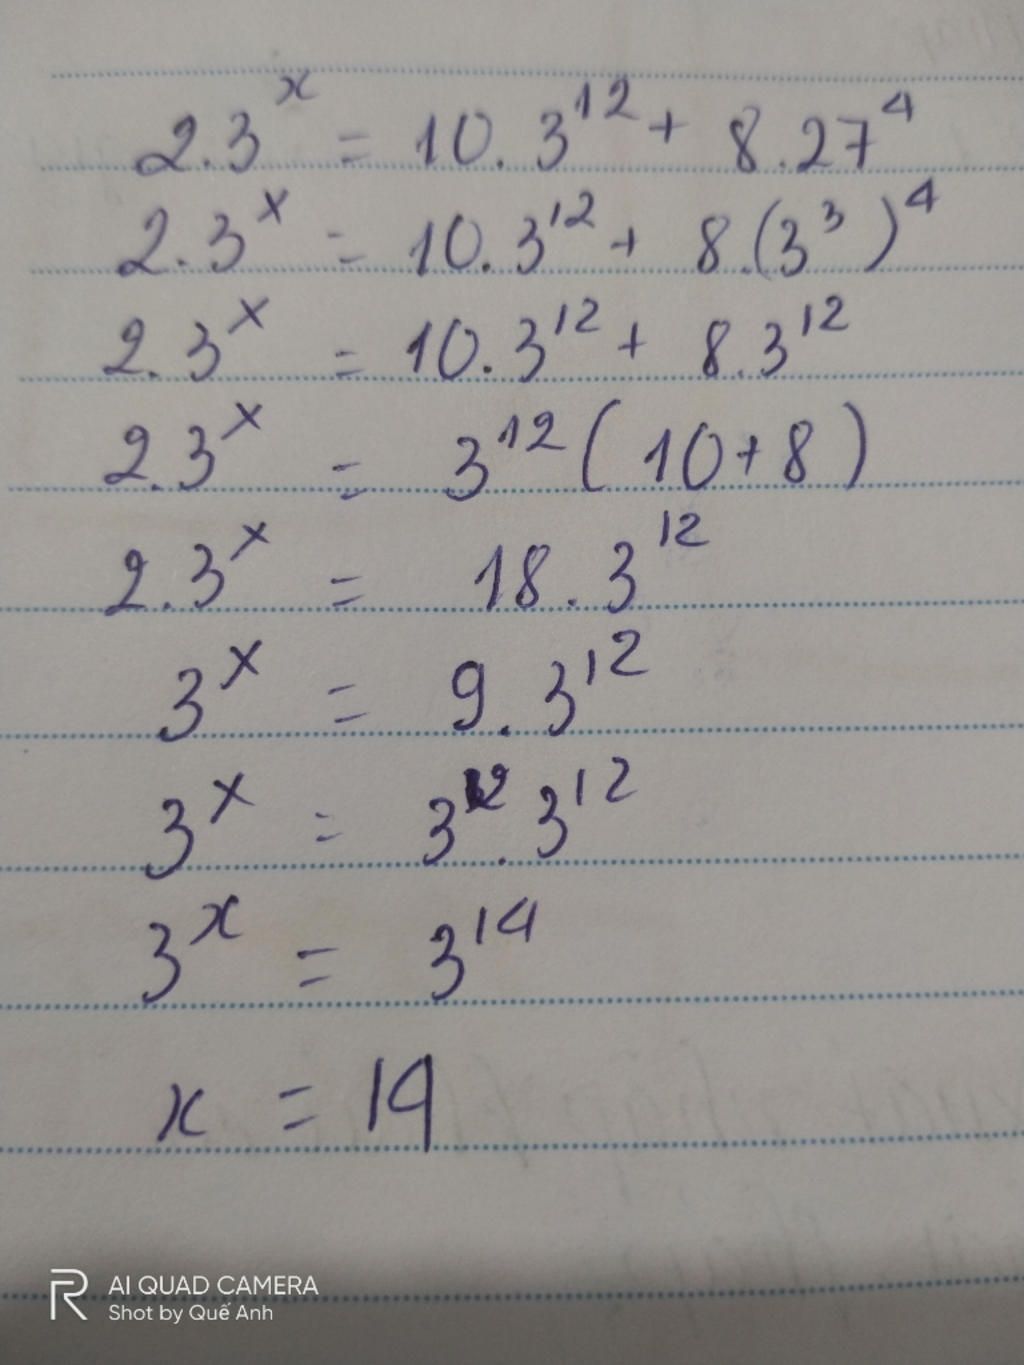 2.3^x = 10.3^12 + 8.27^4
2.3^x = 10.3^12 + 8.(3^3)^4
2.3^x = 10.3^12 + 8.3^12
2.3^x = 3^12 (10+8)
2.3^x = 18.3^12
3^x = 9.3^12
3^x = 3^2.3^12
3^x = 3^14
x = 14
AI QUAD CAMERA
Shot by Quế Anh